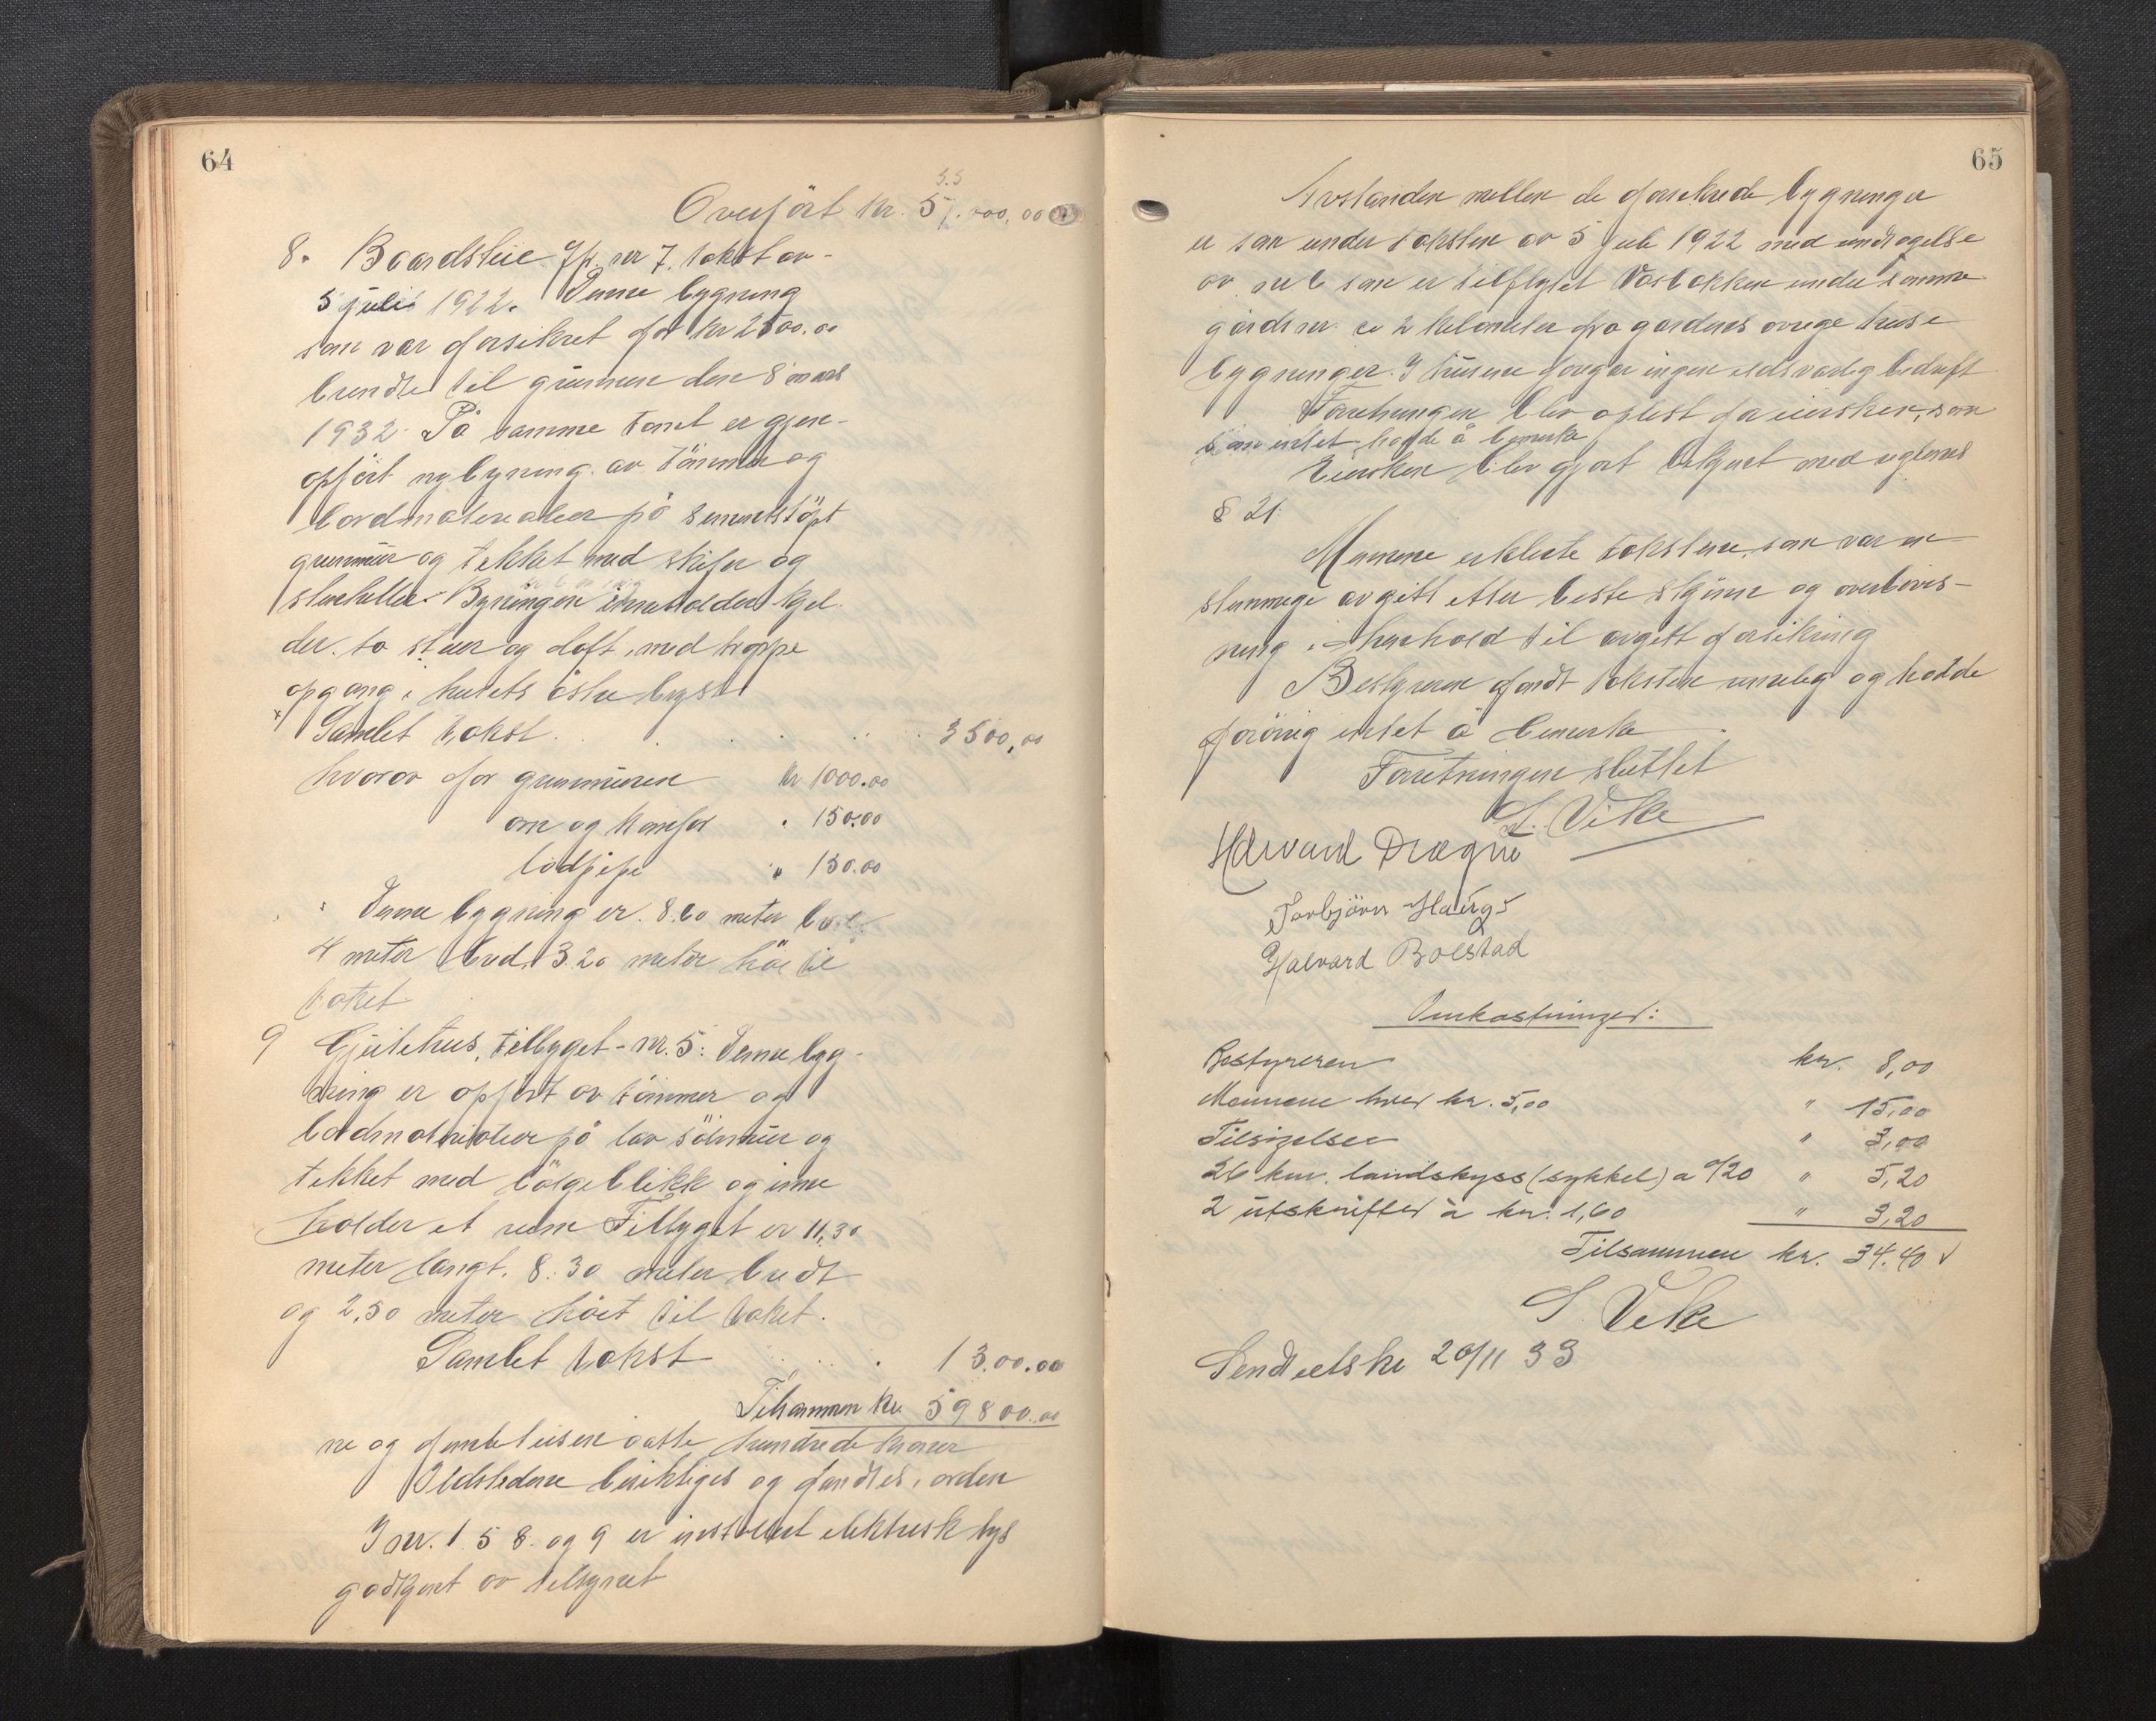 64
Overført kr. 55.000,00
8. Baardstue jfr. nr 7. takst av
5 juli 1922. Denne bygning
som var forsikret for kr 2500.00
brendte til grunnen den 8 mars
1932. På samme tomt er gjen-
opført nybygning av tømmer og
bordmaterialier på sementstöpt
grunmur og tekket med skifer og
stenheller. Bygningen inneholder kjel-
der. to stuer og loft, med trappe
opgang i husets östre
Samlet takst . . . . 3500,00
hvorav for grunmuren kr 1000.00
ovn og komfyr " 150.00
lodpipe " 150.00
Denne bygning er. 8.60 meter
4 meter bred. 3.20 meter höi til
taket
9 Gjeitehus, tilbygget nr. 5: Denne byg-
ning er opfört av tömmer og
bordmaterialier på lav og
tekket med bölgeblikk og inne
holder et rum Tilbygget er 11,30
meter langt. 8.30 meter bredt
og 2,50 meter höit til taket.
Samlet takst . . . . 1300.00
Tilsammen kr 59800.00
ni og femti tusen åtte hundrede kroner
Ildstedene besiktiges og fandtes i orden
I nr. 1 5 8. og 9 er installert elektrisk lys
godkjent av tilsynet
65
Avstanden mellem de forsikrede bygninger
er som under taksten av 5 juli 1922 med undtagelse
av nr 6 som er tilflyttet under samme
gårdsnr. ca 2 kilometer fra gardens övrige hus
bygninger. I husene foregår ingen ildsvarlig bedrift
Forretningen blev oplest for eiersken, som
som intet hadde å bemerke
Eiersken blev gjort bekjent med reglenes
§ 21.
Mennene erklerte takstene, som var en
stemmige avgitt etter beste skjönn og overbevis-
ning i henhold til avgitt forsikring
Bestyreren fandt taksten rimelig og hadde
forövrig intet å bemerke.
Forretningen sluttet
S. Vike
Harvard Drægni
Torbjörn Haugs
Halvard Bolstad
Omkostninger:
Bestyreren kr. 8,00
Mennene hver kr. 5,00 " 15,00
Tilsigelser " 3,00
26 km. landskyss (sykkel) a 0/20 " 5,20
2 utskrifter à kr. 1,60 " 3,20
Tilsammen kr. 34.40 √
S Vike
Sendt utskr 20/11 33